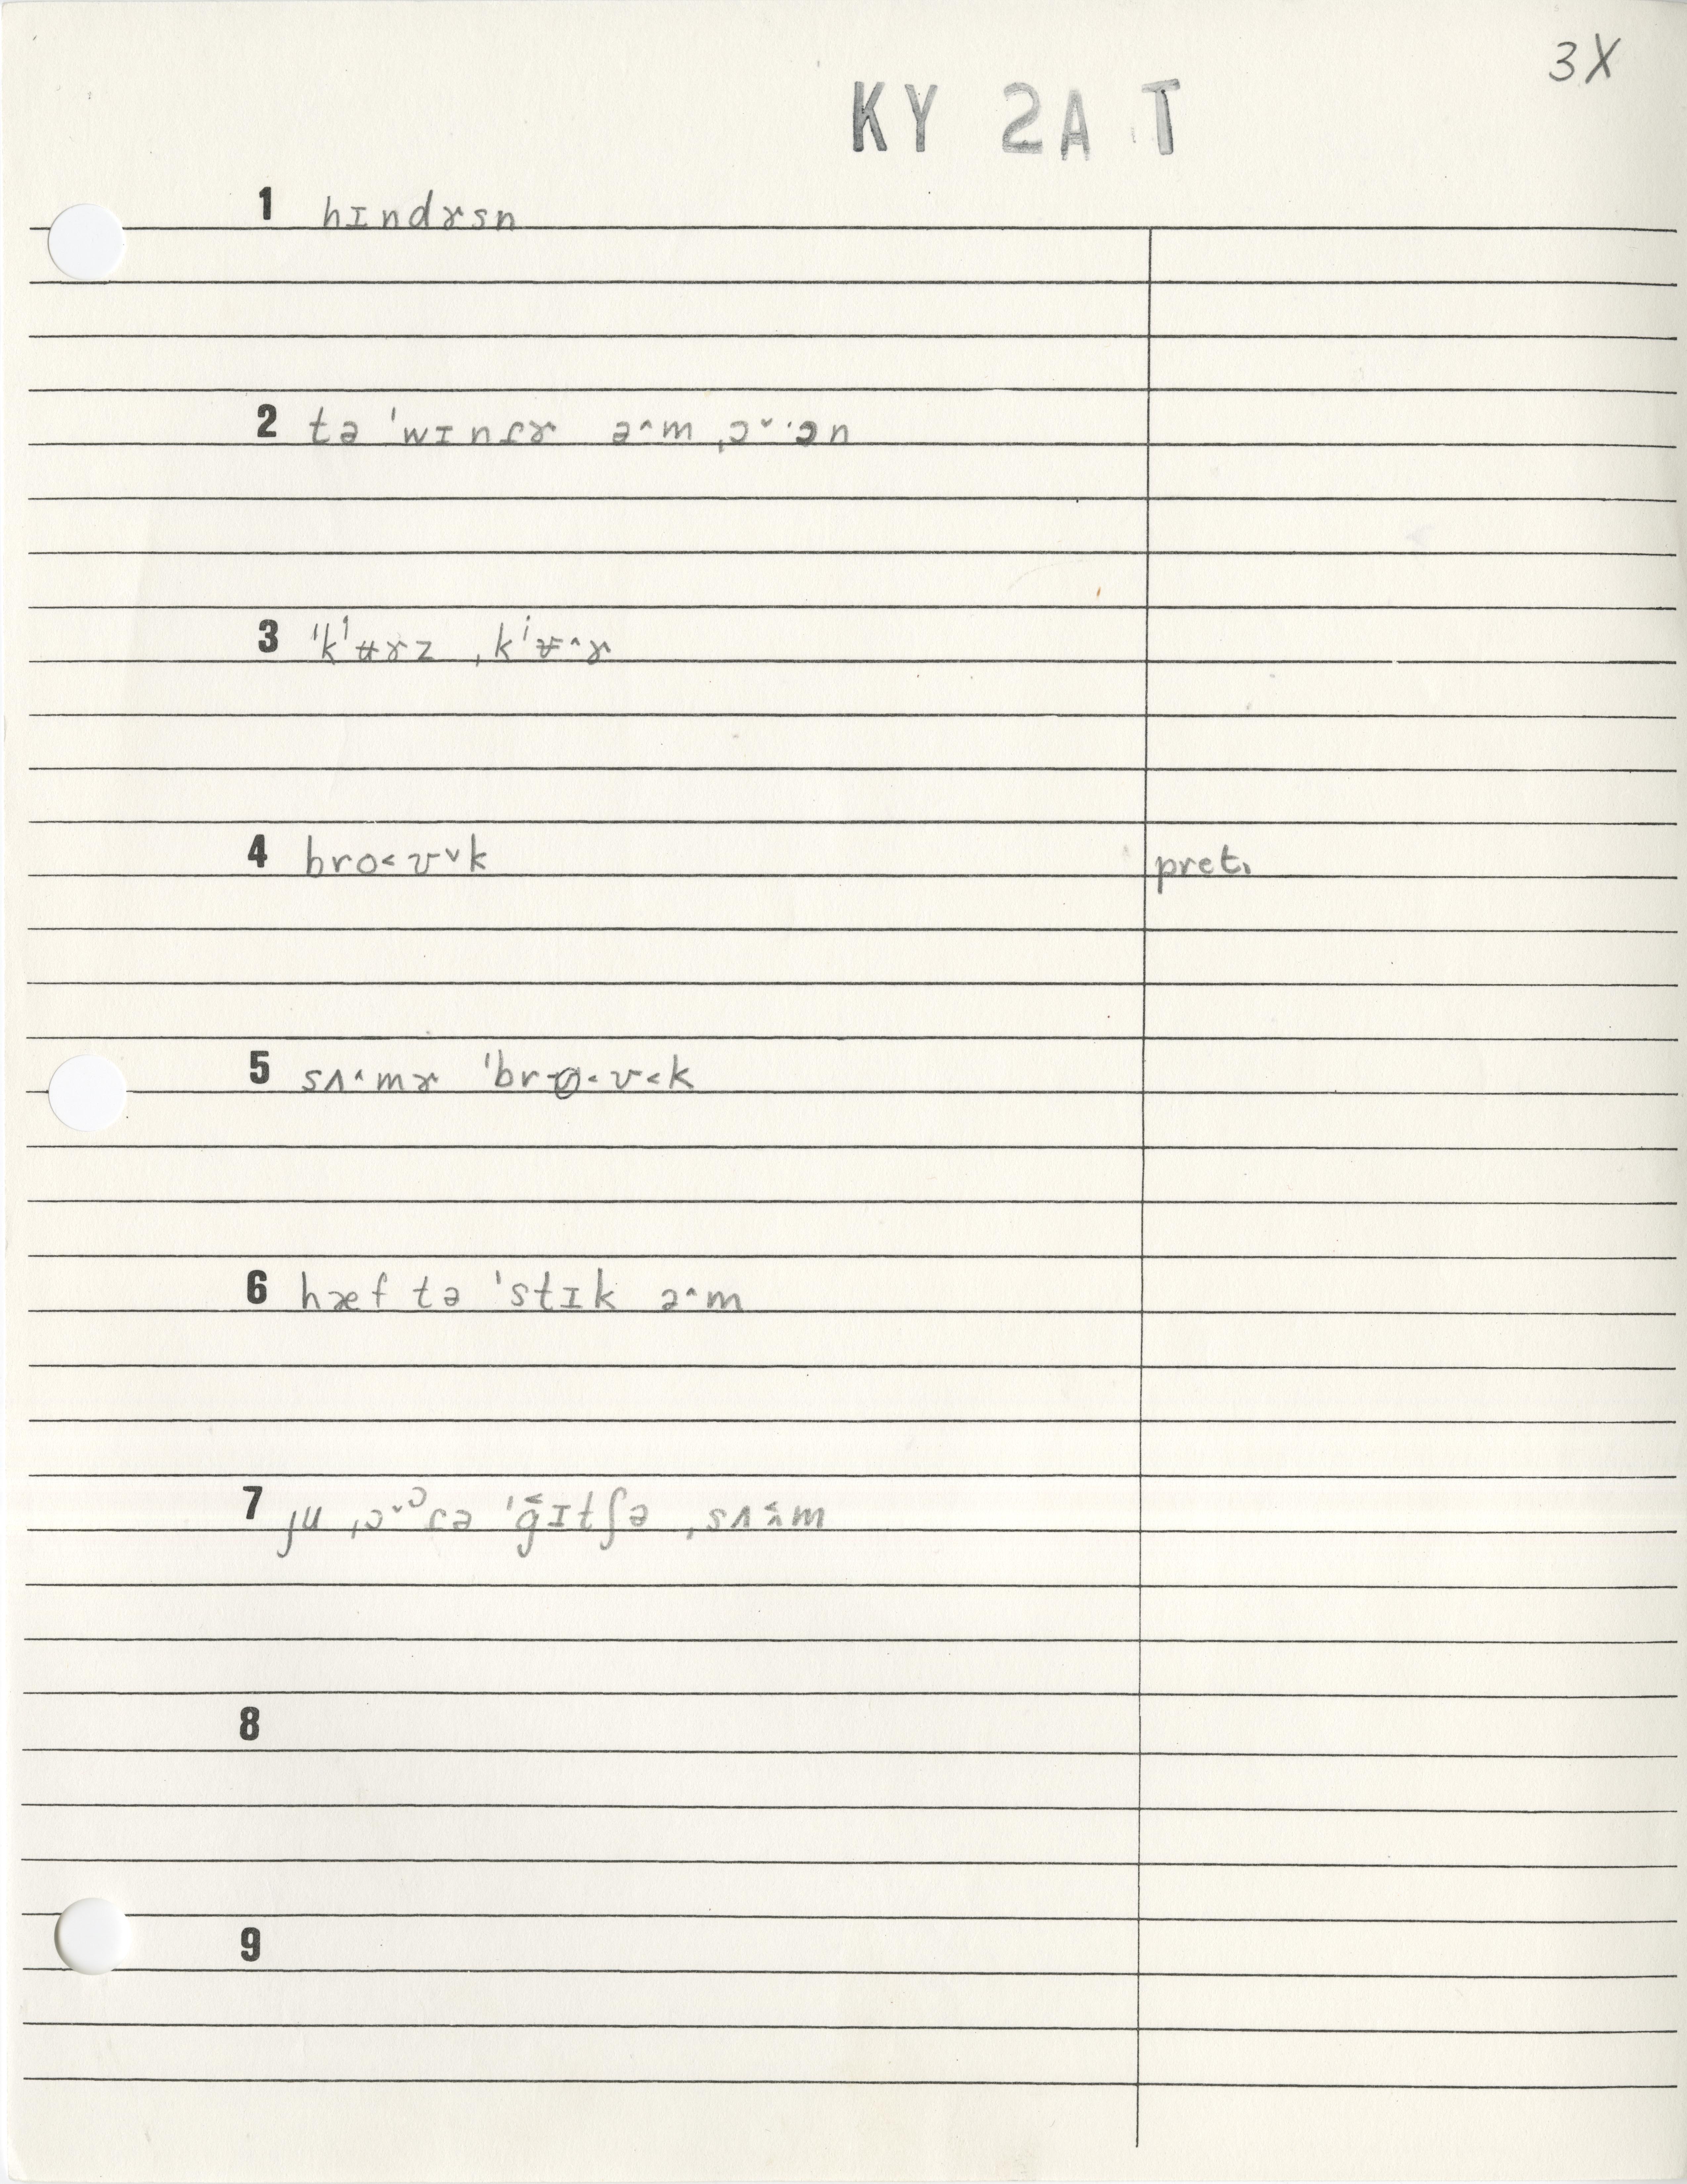 3X
KY 2A T
1 hɪndɤsn
2 tə ˈwɪnɾɤ ə˄m ˌɔ˅·ɔn
3 ˈkʲʉɤz ˌkʲʉ˄ɤ
4 bro˂ʊ˅k pret.
5 sʌ˄mɤ ˈbrɵ˂ʊ˂k
6 hæf tə ˈstɪk ə˄m
7 ju ˌɔ˅ɔɾə ˈɡ̌ɪtʃə ˌsʌ˄m
8
9